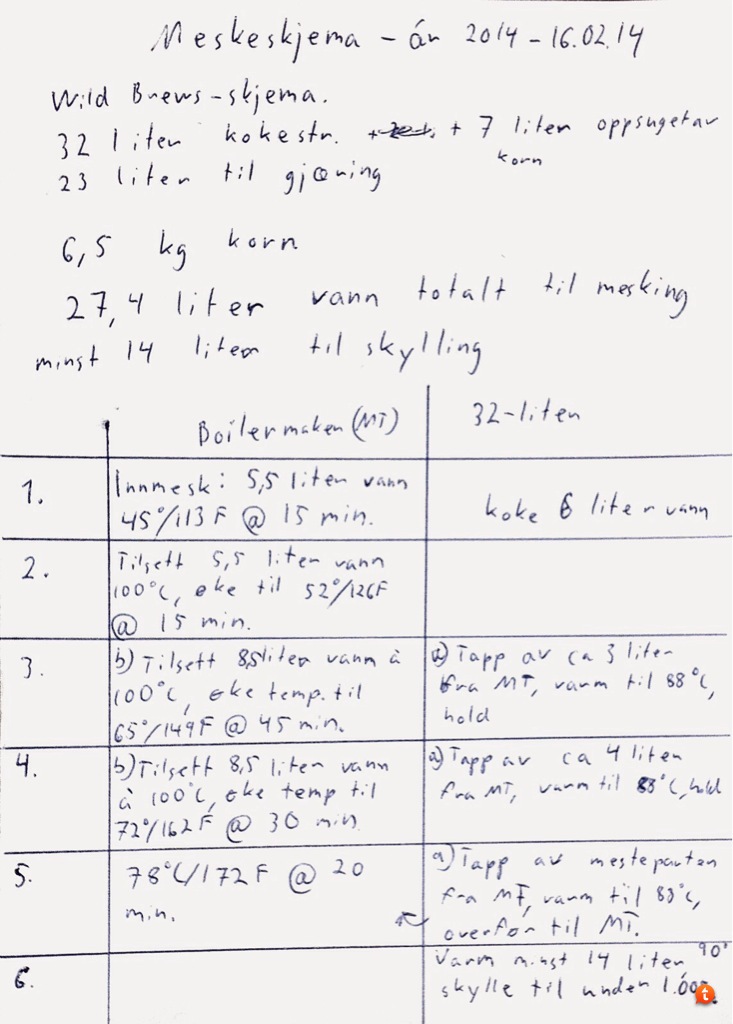 Meskeskjema - år 2014 - 16.02.14
Wild Brews-skjema.
32 liter kokestr. + 7 liter oppsuget av
korn
23 liter til gjæring
6,5 kg korn
27,4 liter vann totalt til mesking
minst 14 liter til skylling
Boilermaker (MT)
32-liter
1.
Innmesk: 5,5 liter vann
45°/113 F @ 15 min.
koke 6 liter vann
2.
Tilsett 5,5 liter vann
100°C, øke til 52°/126F
@ 15 min.
3.
b) Tilsett 8,5 liter vann à
100°C, øke temp. til
65°/149F @ 45 min.
a) Tapp av ca 3 liter
fra MT, varm til 88°C,
hold
4.
b) Tilsett 8,5 liter vann
à 100°C, øke temp til
72°/162F @ 30 min
a) Tapp av ca 4 liter
fra MT, varm til 88°C, hold
5.
78°C/172 F @ 20
min.
a) Tapp av mesteparten
fra MT, varm til 88°C,
overfør til MT.
6.
Varm minst 14 liter 90°
skylle til under